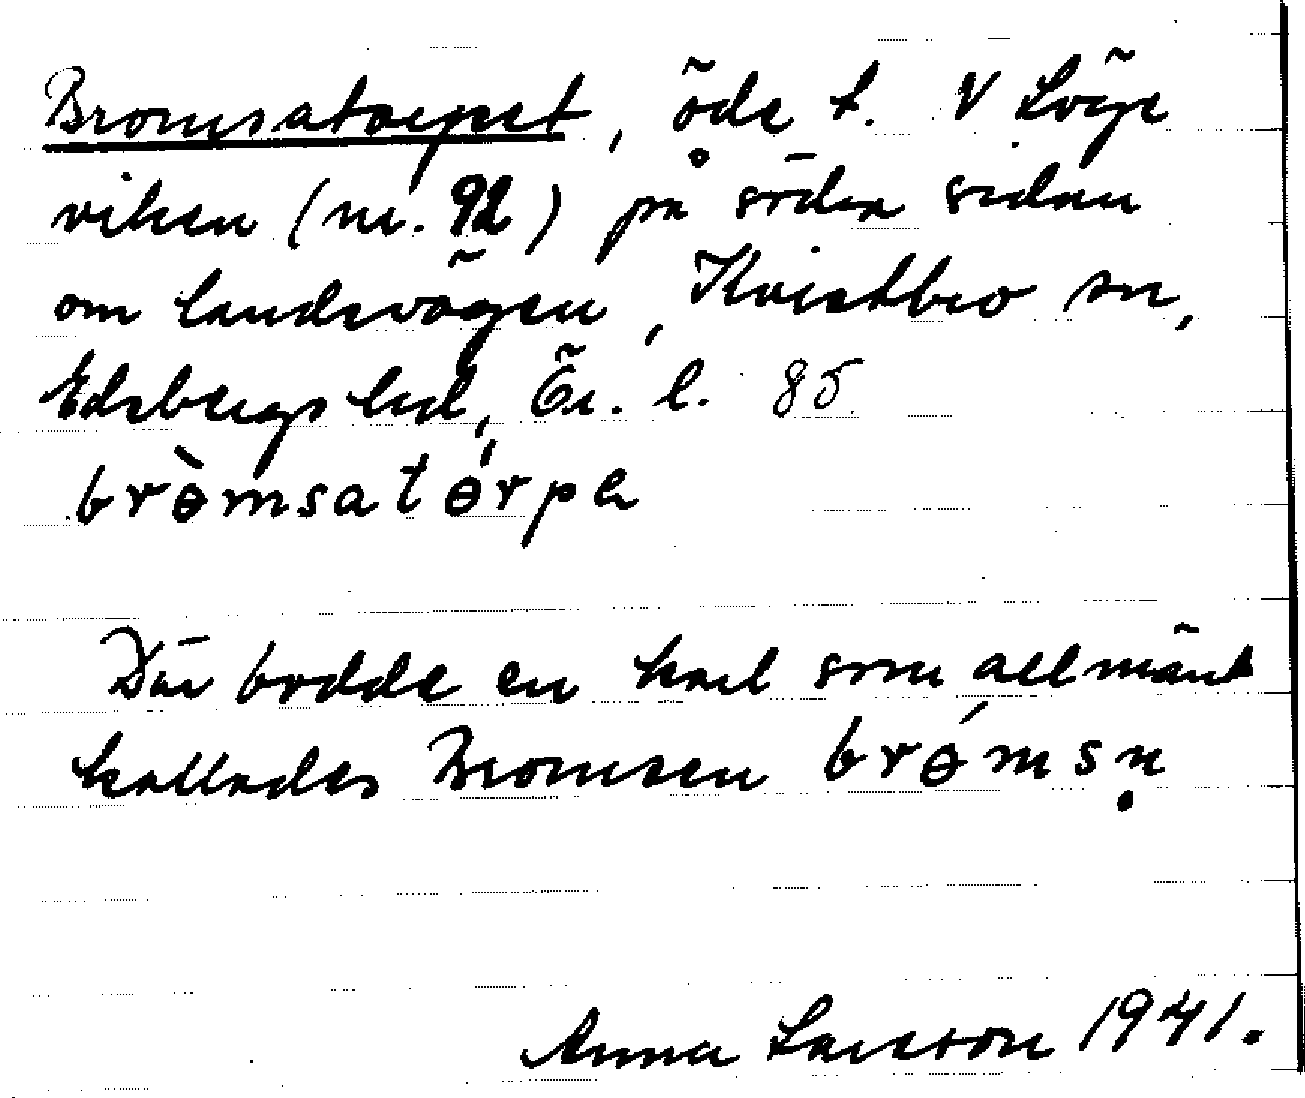 Bromsatorpet, öde t. V Löge
viken (nr. 92) på södra sidan
om landsvägen, Kvistbro sn,
Edsbergs hd, Ör. l. 85
brɵ̀msatɵ́rpa
Där bodde en karl som allmänt
kallades Bromsen brɵ́msṇ
Anna Larsson 1941.